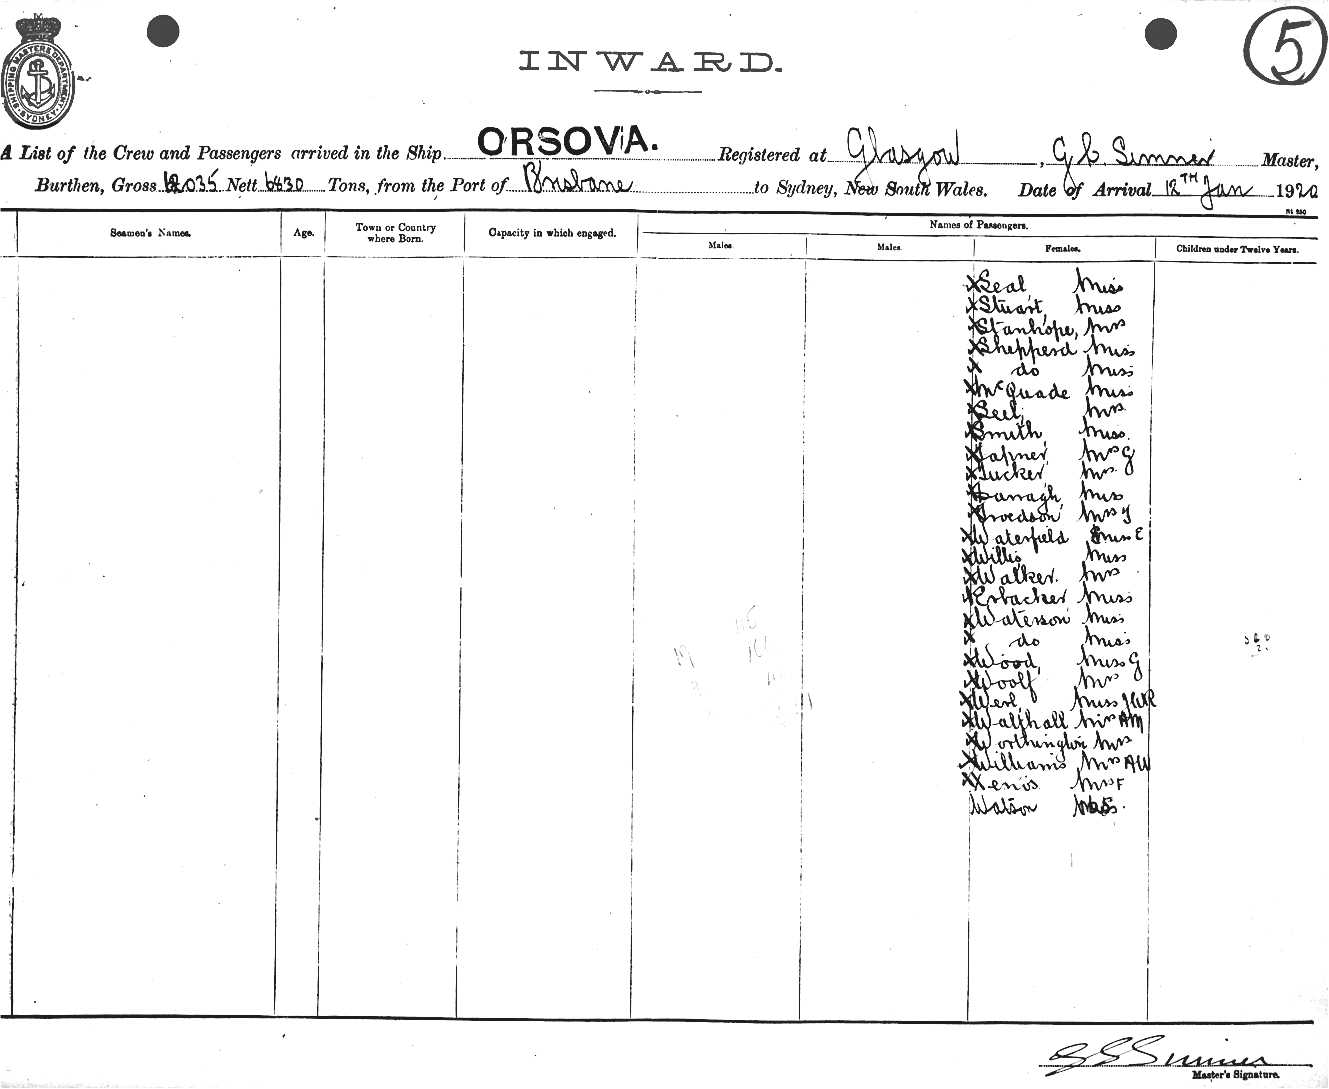 SHIPPING MASTERS DEPARTMENT SYDNEY
5
INWARD.
A List of the Crew and Passengers arrived in the Ship ORSOVA. Registered at Glasgow, Master,
Burthen, Gross 12035 Nett 6830 Tons, from the Port of Brisbane to Sydney, New South Wales. Date of Arrival 12TH Jan 1920
Seamen's Names. Age. Town or Country where Born. Capacity in which engaged. Names of Passengers.
Males Males. Females. Children under Twelve Years.
X Seal, Miss
X Stuart, Miss
X Stanhope, Mrs
X Shepperd Miss
X do Miss
X McQuade Miss
X Seel, Mrs
X Smith, Miss.
X Mrs G
X Tucker, Mrs
X Darragh Miss
X Mrs
X Waterfield Miss E
X Willis, Miss
X Walker. Mrs
X Miss
X Waterson Miss
X do Miss
X Wood, Miss G
X Woolf Mrs
X Miss
X Walthall Mrs AM
X Worthington Mrs
X Williams Mrs AW
X Xenos Mrs F
Watson
Master's Signature.